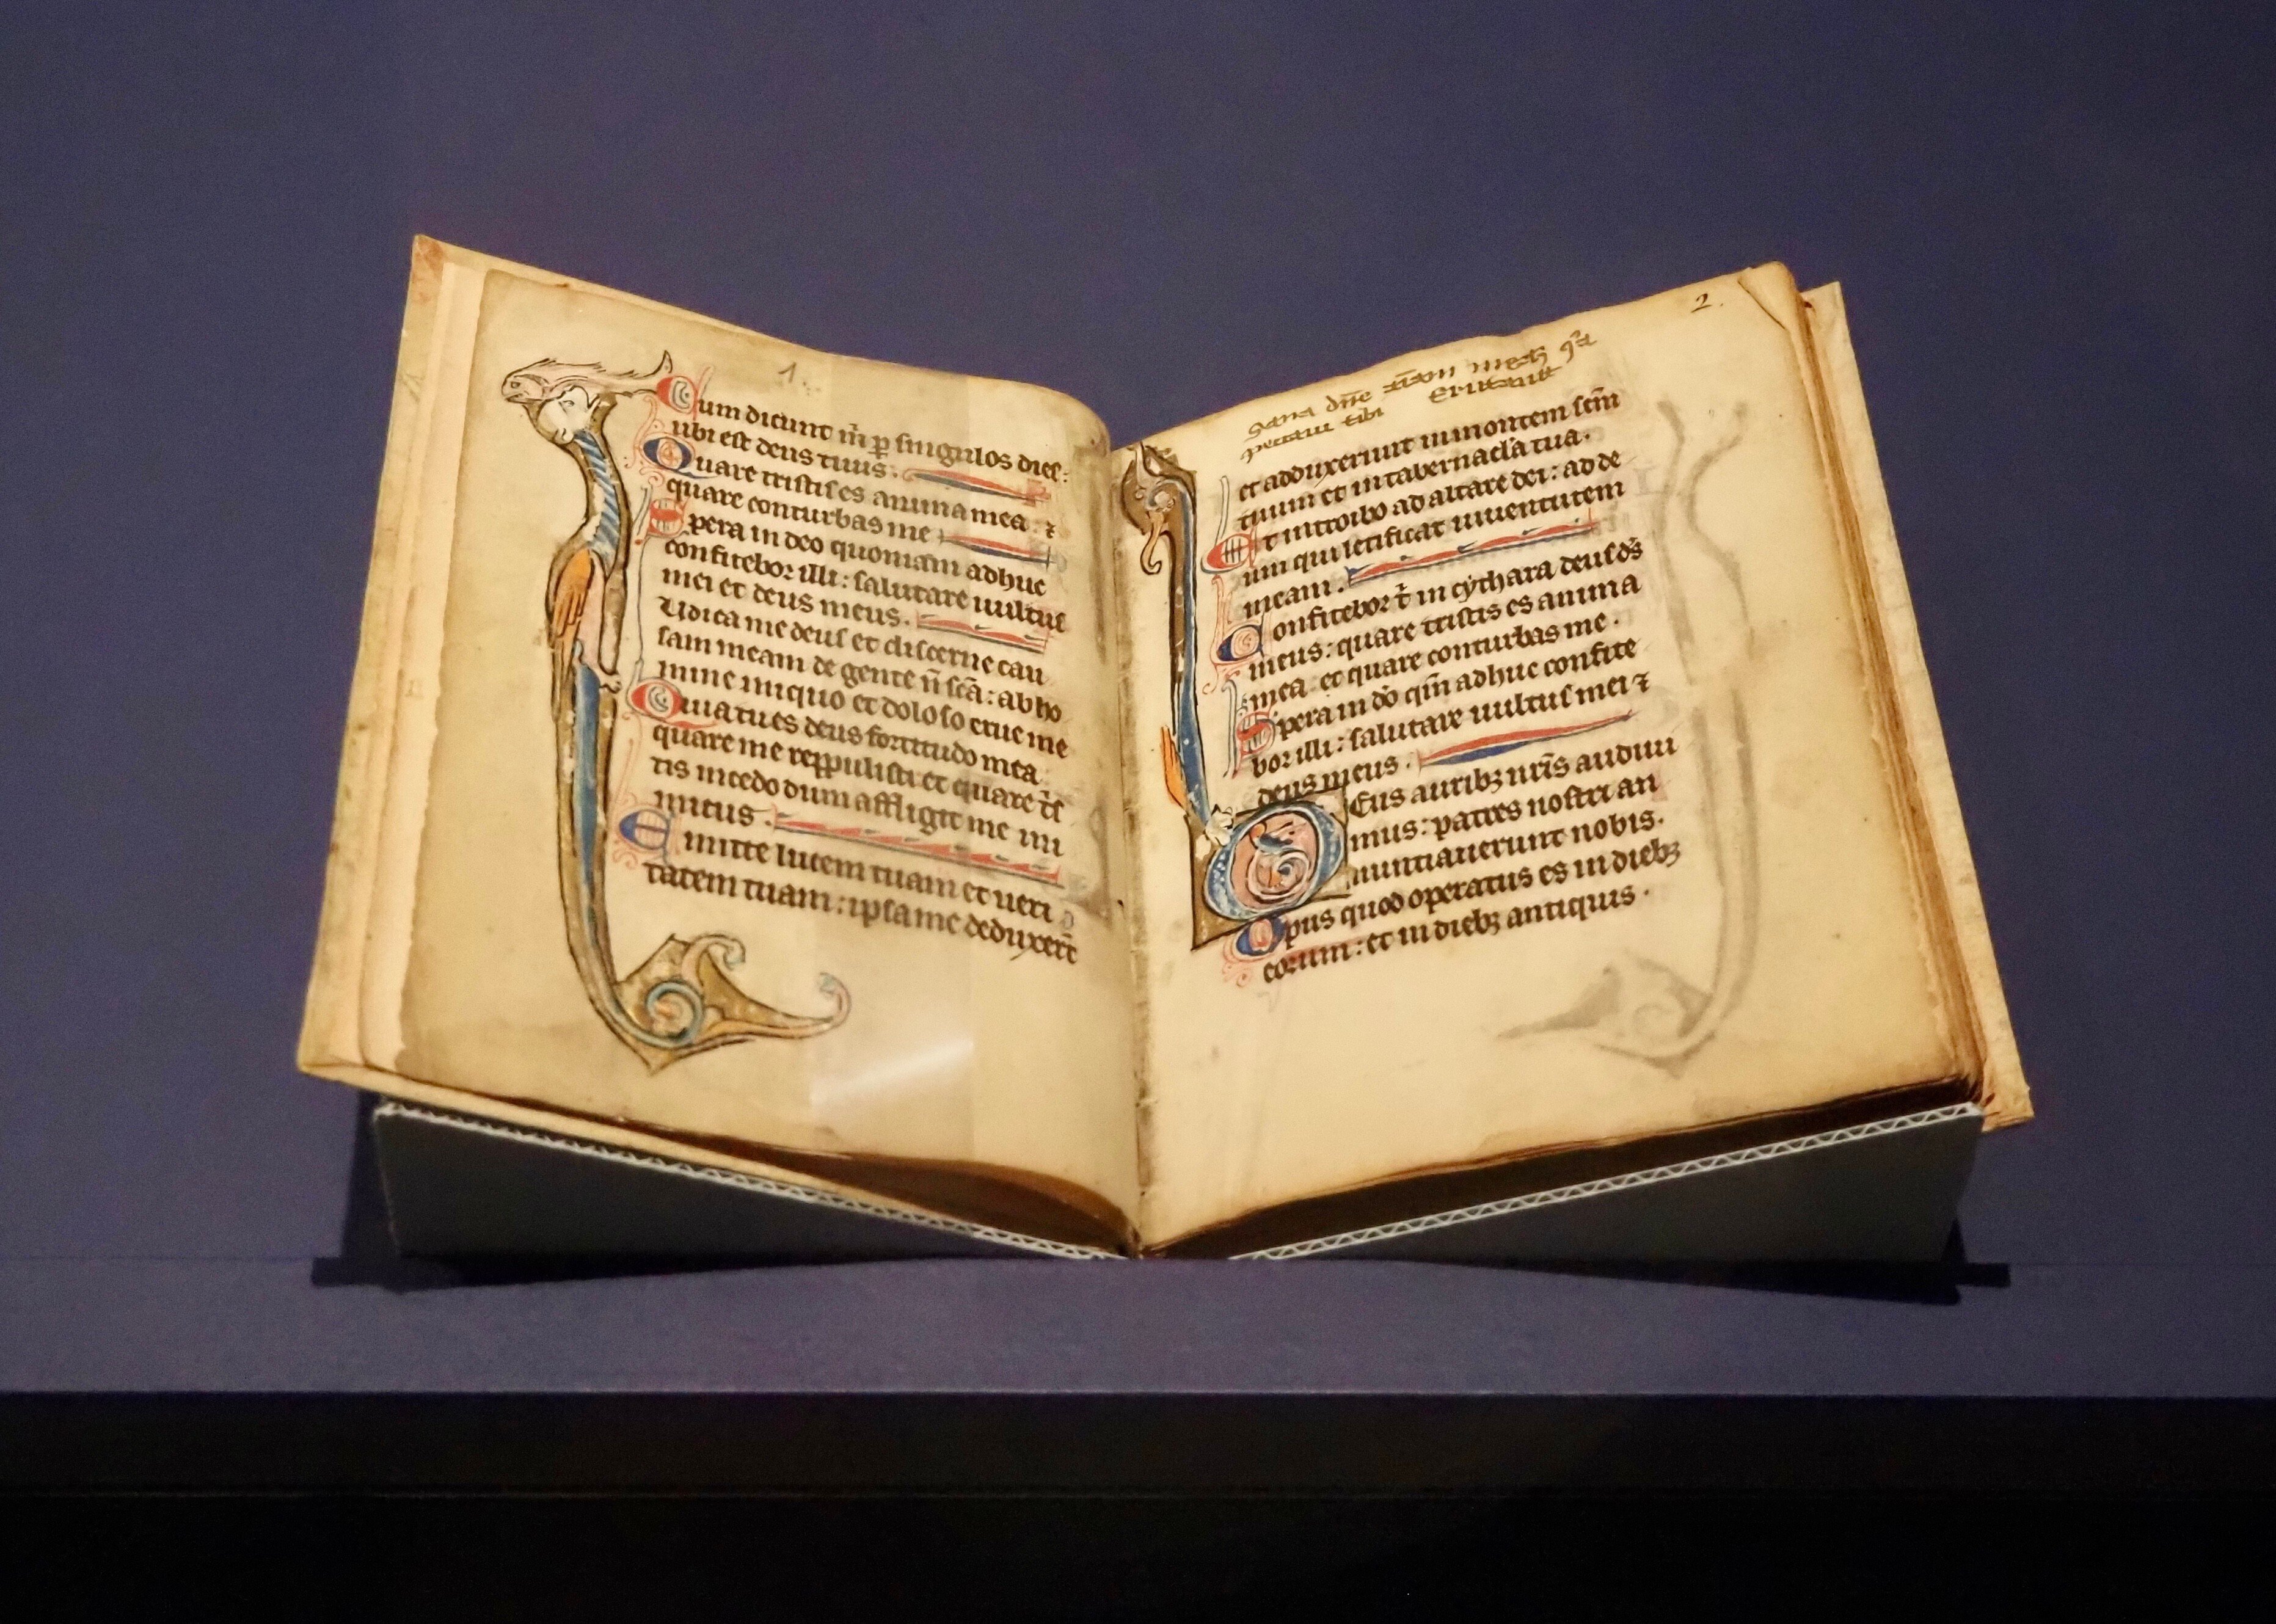 1.
Cum dicunt m̄ p̲ singulos dies:
ubi est deus tuus.
Quare tristis es anima mea: ⁊
quare conturbas me
Spera in deo quoniam adhuc
confitebor illi: salutare uultus
mei et deus meus.
Iudica me deus et discerne cau
sam meam de gente ñ scā: ab ho
mine iniquo et doloso erue me
Quia tu es deus fortitudo mea
quare me reppulisti et quare t̄s
tis incedo dum affligit me ini
micus.
Emitte lucem tuam et ueri
tatem tuam: ipsa me deduxer̄t
2.
Sana dñe aīam meā q̄a
peccaui tibi
et adduxerunt in montem scm̄
tuum et in tabernacla tua.
Et introibo ad altare dei: ad de
um qui letificat iuuentutem
meam.
Confitebor t̄ in cythara deus ds̄
meus: quare tristis es anima
mea et quare conturbas me.
Spera in dō qm̄ adhuc confite
bor illi: salutare uultus mei ⁊
deus meus.
DEus auribꝫ nr̄is audiui
mus: patres nostri an
nuntiauerunt nobis.
Opus quod operatus es in diebꝫ
eorum: et in diebꝫ antiquis.